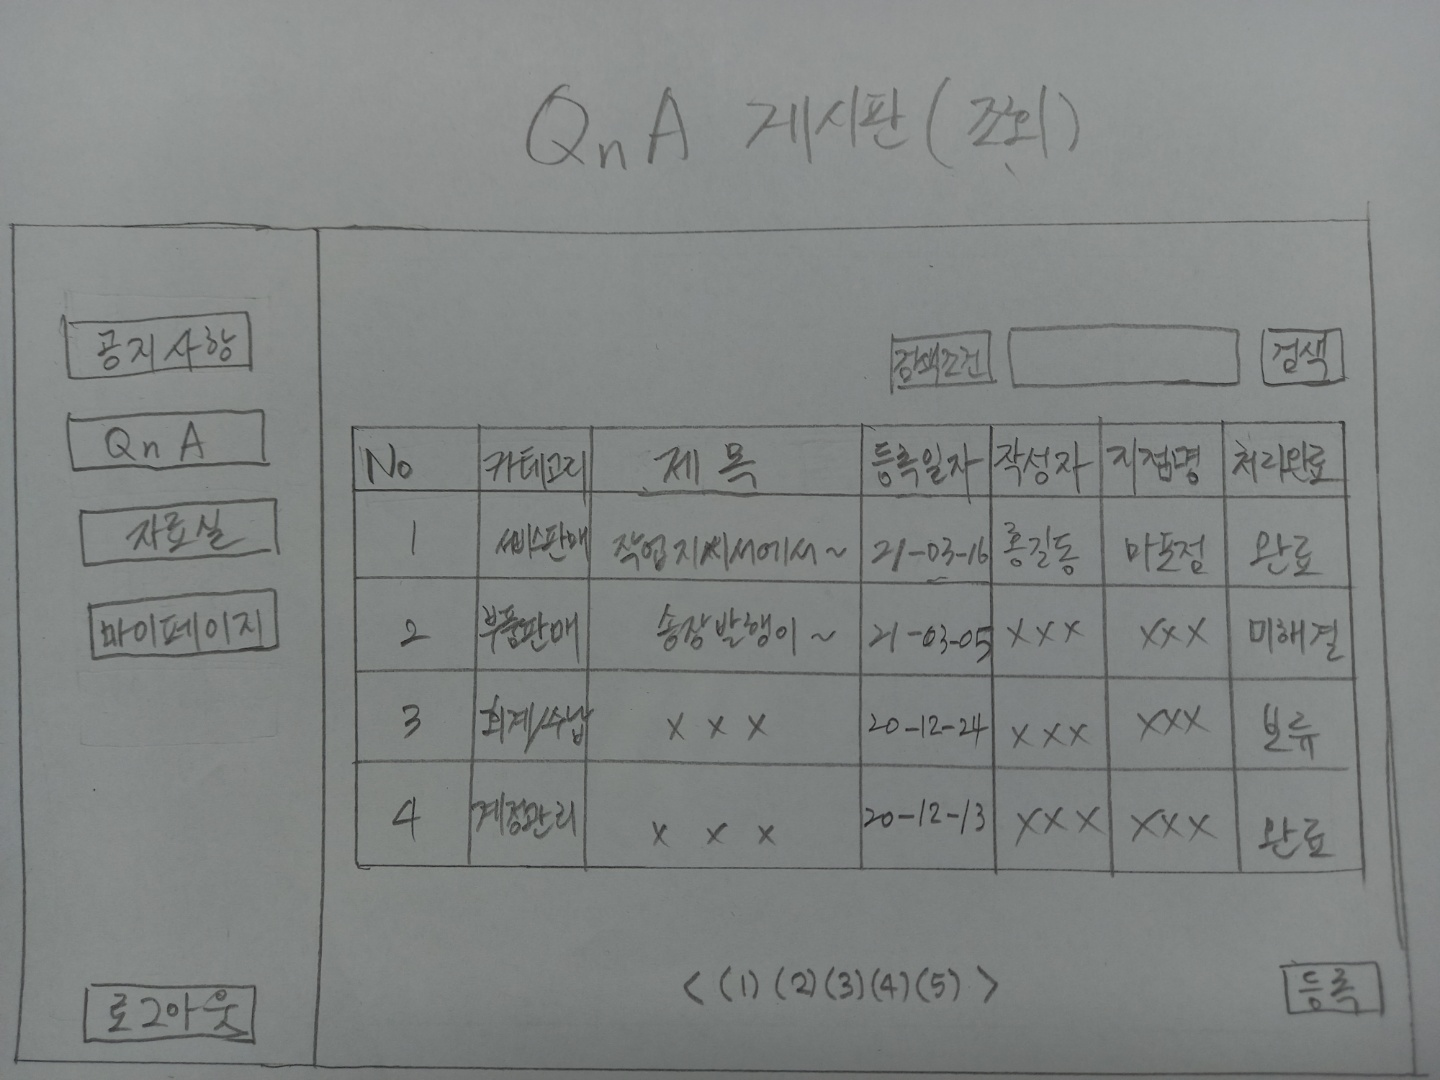 QnA 게시판(조회)
공지사항
QnA
자료실
마이페이지
로그아웃
검색조건 검색
No 카테고리 제목 등록일자 작성자 지점명 처리완료
1 서비스판매 작업지시서에서~ 21-03-16 홍길동 마포점 완료
2 부품판매 송장발행이~ 21-03-05 xxx xxx 미해결
3 회계/수납 x x x 20-12-24 xxx xxx 보류
4 계정관리 x x x 20-12-13 xxx xxx 완료
< (1) (2) (3) (4) (5) >
등록